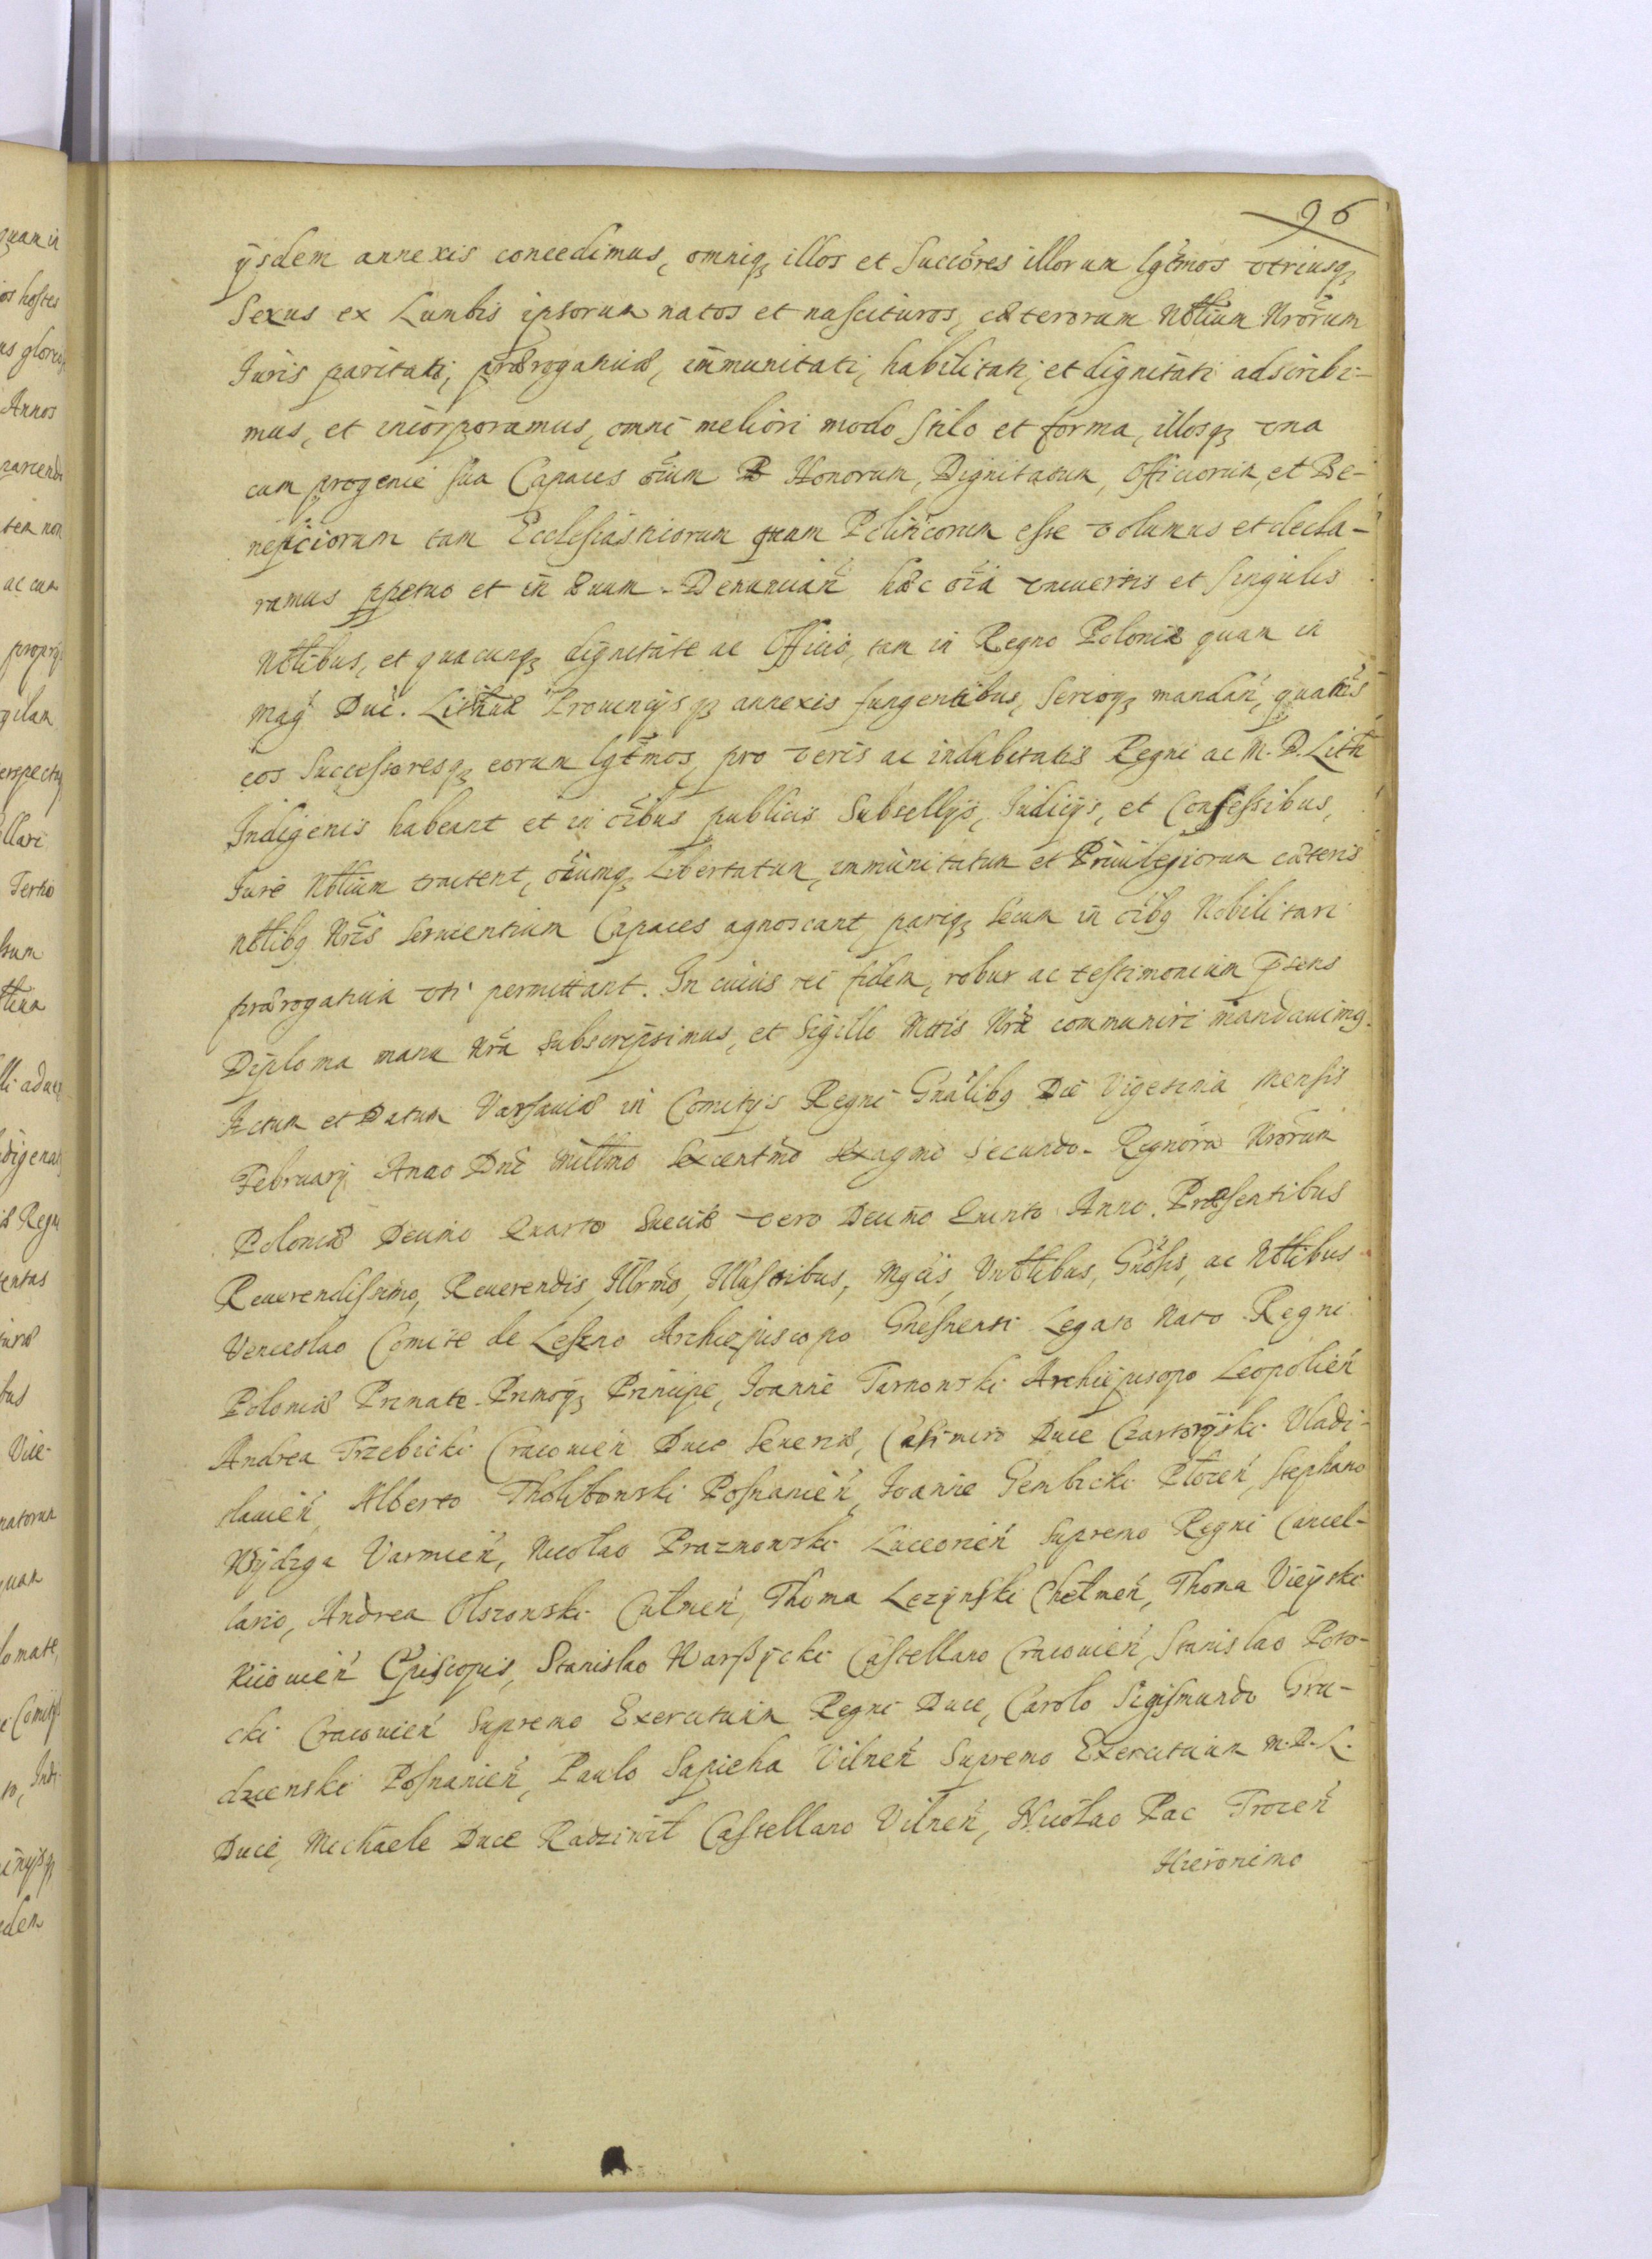 96
ysdem annexis concedimus, omniq₃ illos et Succōres illorum lgt̄mos vtriusq₃
Sexus ex Lumbis ipsorum natos et nascituros, cæterorum Nbtlium Nrōrum
Iuris paritati, prærogatiuæ, im̄unitati, habilitati, et dignitati adscribi-
mus, et incorporamus, omni meliori modo stilo et forma, illosq₃ vna
cum progenie sua Capaces oīum Honorum, Dignitatum, Officiorum, et Be-
neficiorum tam Ecclesiasticorum quam Politicorum esse volumus et decla-
ramus ppetuo et in æuum. Denuncian̄ hæc oīa vniuersis et singulis
Nbtlibus, et quacunq₃ dignitate ac Officio, tam in Regno Poloniæ quam in
Mag̃ Duc̃. Lithuæ Prouincijsq₃ annexis fungentibus, serioq₃ mandan̄, quat̄us
eos Successoresq₃ eorum lgt̄mos, pro veris ac indubitatis Regni ac M. D. Lith̄
Indigenis habeant et in oībus publicis Subsellijs, Iudicijs, et Consessibus,
Iure Nbtlium tractent, oīumq₃ Libertatum, immunitatum et Priuilegiorum cæteris
nbtlibq Nrīs seruientium Capaces agnoscant pariq₃ secum in oībq Nobilitari
prærogatiua vti permittant. In cuius rei fidem, robur ac testimonium p̄sens
Diploma manu Nrā subscripsimus, et Sigillo Mttis Nræ communiri mandauimq.
Actum et Datum Varsauiæ in Comitijs Regni Gnālibq Die Vigesima Mensis
February Anno Dnī Milltmo Sexcentmō sexagmō Secundo. Regnōrū Nrōrum
Poloniæ Decimo Quarto Sueciæ vero Decimo Quinto Anno. Præsentibus
Reuerendissimo, Reuerendis, Illrmō, Illustribus, Mgcīs, Vrttlibus, Gnōsis, ac Nbtlibus
Venceslao Comite de Leszno Archiepiscopo Gnesnensi Legato Nato Regni
Poloniæ Primate Primoq₃ Principe, Ioanne Tarnowski Archiepiscopo Leopolien̄
Andrea Trzebicki Cracouien̄ Duce Seueriæ, Casimiro Duce Czartoryiski Vladi-
slauien̄, Alberto Tholibowski Posnanien̄, Ioanne Gembicki Płocen̄, Stephano
Wydzga Varmien̄, Nicolao Prazmowski Luceorien̄ Supremo Regni Cancel-
lario, Andrea Olszowski Culmen̄, Thoma Lezynski Chełmen̄, Thoma Vieyski
Kiiouien̄ Episcopis, Stanislao Warszycki Castellano Cracouien̄, Stanislao Poto-
cki Cracouien̄ Supremo Exercituum Regni Duce, Carolo Sigismundo Gru-
dzienski Posnanien̄, Paulo Sapieha Vilnen̄ Supremo Exercituum M. D. L.
Duce, Michaele Duce Radziwił Castellano Vilnen̄, Nicolao Pac Trocen̄
Hieronimo